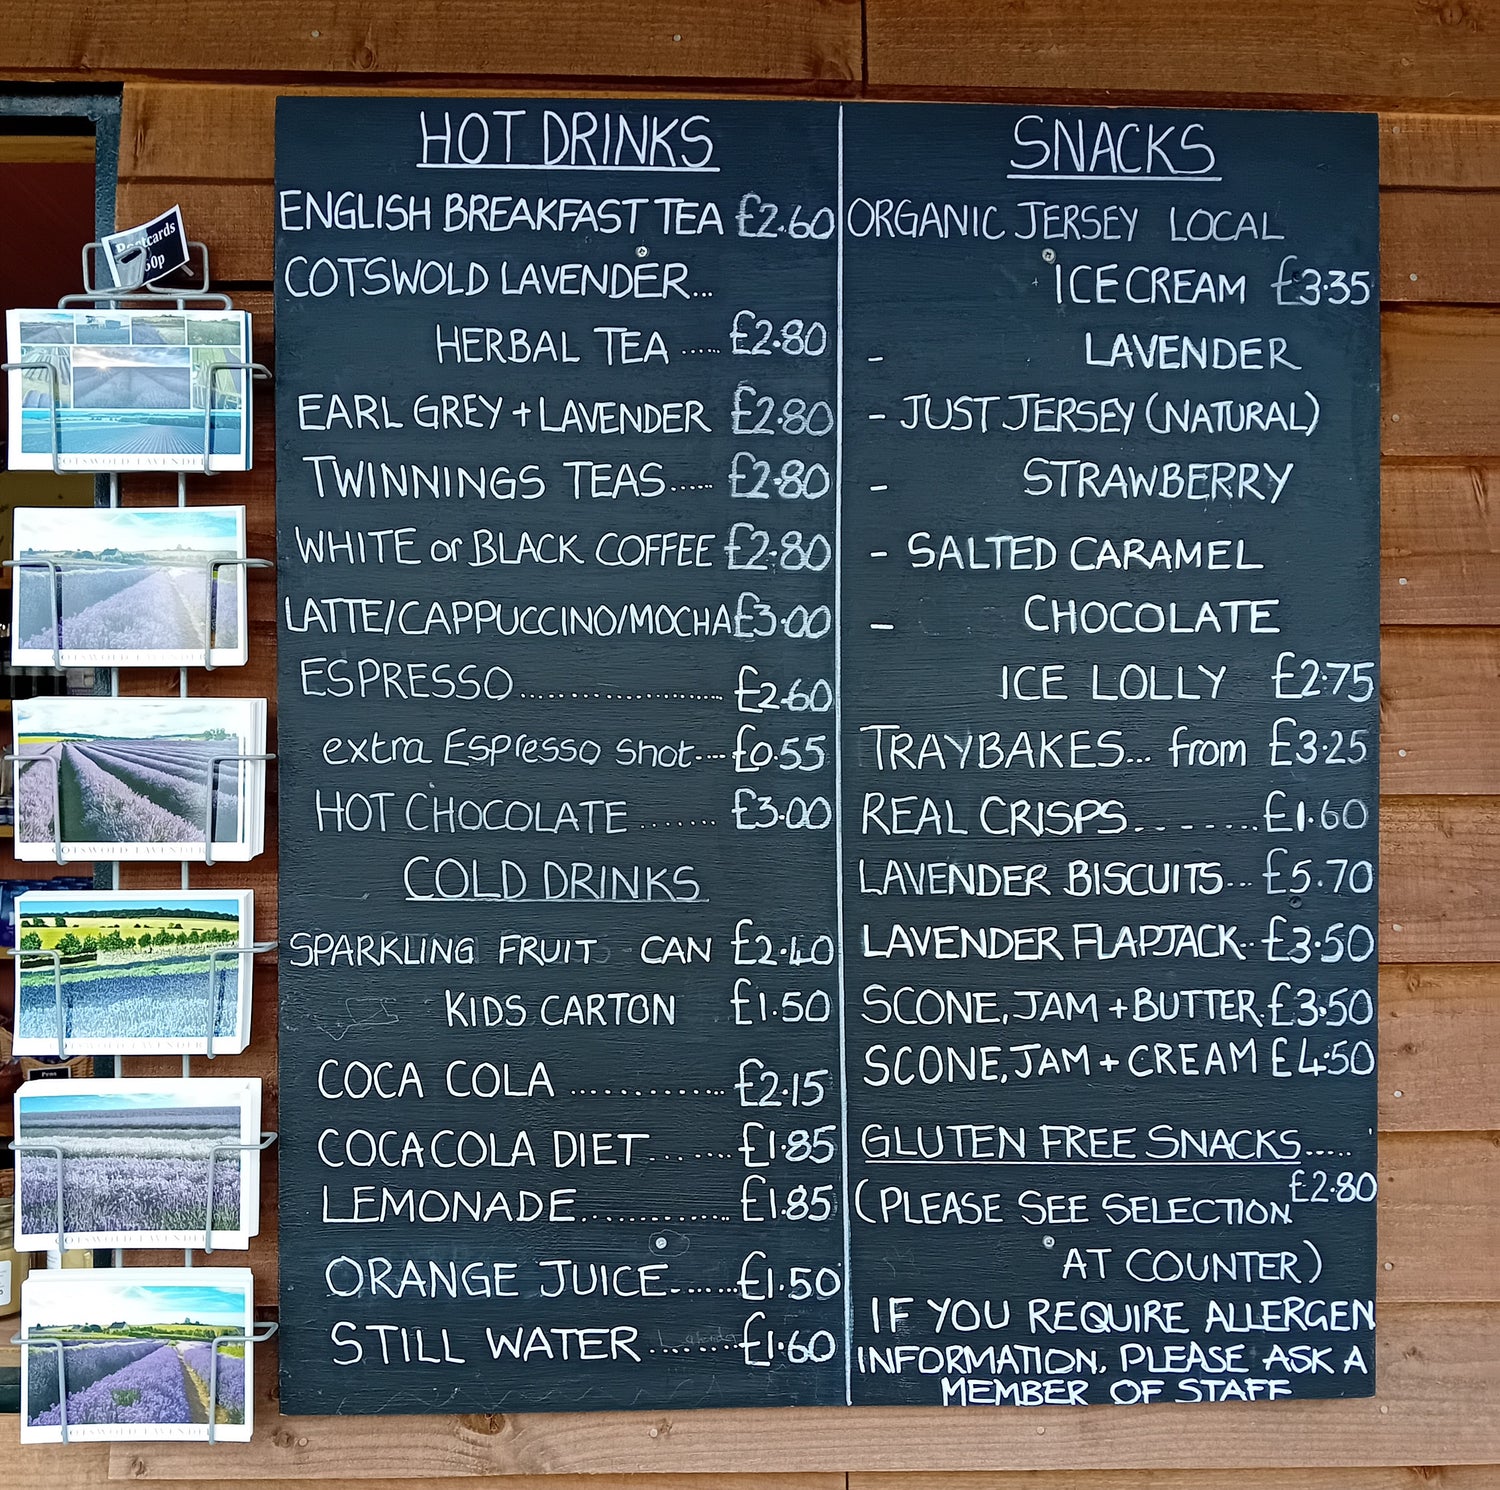 HOT DRINKS
ENGLISH BREAKFAST TEA £2.60
COTSWOLD LAVENDER...
HERBAL TEA ..... £2.80
EARL GREY + LAVENDER £2.80
TWINNINGS TEAS..... £2.80
WHITE or BLACK COFFEE £2.80
LATTE/CAPPUCCINO/MOCHA £3.00
ESPRESSO..................... £2.60
extra Espresso shot.... £0.55
HOT CHOCOLATE ....... £3.00
COLD DRINKS
SPARKLING FRUIT CAN £2.40
KIDS CARTON £1.50
COCA COLA ............. £2.15
COCA COLA DIET....... £1.85
LEMONADE............. £1.85
ORANGE JUICE...... £1.50
STILL WATER ........ £1.60
SNACKS
ORGANIC JERSEY LOCAL
ICE CREAM £3.35
- LAVENDER
- JUST JERSEY (NATURAL)
- STRAWBERRY
- SALTED CARAMEL
- CHOCOLATE
ICE LOLLY £2.75
TRAYBAKES... from £3.25
REAL CRISPS........ £1.60
LAVENDER BISCUITS... £5.70
LAVENDER FLAPJACK.. £3.50
SCONE, JAM + BUTTER. £3.50
SCONE, JAM + CREAM £4.50
GLUTEN FREE SNACKS.....
£2.80
(PLEASE SEE SELECTION
AT COUNTER)
IF YOU REQUIRE ALLERGEN
INFORMATION, PLEASE ASK A
MEMBER OF STAFF
Postcards
COTSWOLD LAVENDER
COTSWOLD LAVENDER
COTSWOLD LAVENDER
COTSWOLD LAVENDER
COTSWOLD LAVENDER
COTSWOLD LAVENDER
Pens